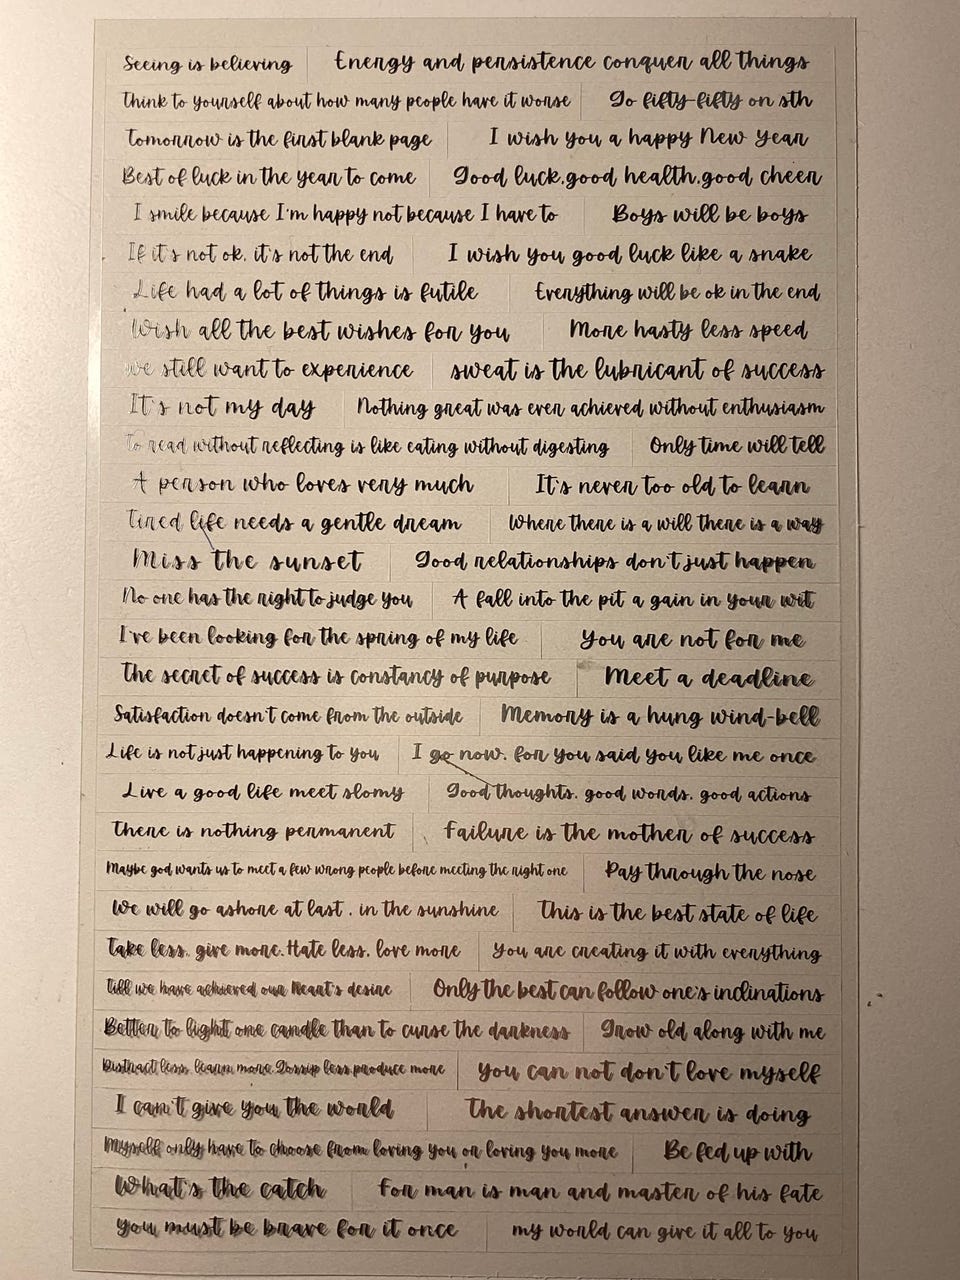 Seeing is believing Energy and persistence conquer all things
Think to yourself about how many people have it worse Go fifty-fifty on sth
Tomorrow is the first blank page I wish you a happy New Year
Best of luck in the year to come Good luck,good health,good cheer
I smile because I'm happy not because I have to Boys will be boys
If it's not ok, it's not the end I wish you good luck like a snake
Life had a lot of things is futile Everything will be ok in the end
Wish all the best wishes for you More hasty less speed
we still want to experience sweat is the lubricant of success
It's not my day Nothing great was ever achieved without enthusiasm
To read without reflecting is like eating without digesting Only time will tell
A person who loves very much It's never too old to learn
Tired life needs a gentle dream Where there is a will there is a way
Miss the sunset Good relationships don't just happen
No one has the right to judge you A fall into the pit a gain in your wit
I've been looking for the spring of my life You are not for me
The secret of success is constancy of purpose Meet a deadline
Satisfaction doesn't come from the outside Memory is a hung wind-bell
Life is not just happening to you I go now, for you said you like me once
Live a good life meet slomy Good thoughts, good words, good actions
There is nothing permanent Failure is the mother of success
Maybe god wants us to meet a few wrong people before meeting the right one Pay through the nose
We will go ashore at last , in the sunshine This is the best state of life
Take less, give more,Hate less, love more You are creating it with everything
till we have achieved our Heart's desire Only the best can follow one's inclinations
Better to light one candle than to curse the darkness Grow old along with me
Distract less, learn more,Gossip less,produce more You can not don't love myself
I can't give you the world The shortest answer is doing
Myself only have to choose from loving you or loving you more Be fed up with
What's the catch For man is man and master of his fate
you must be brave for it once my world can give it all to you